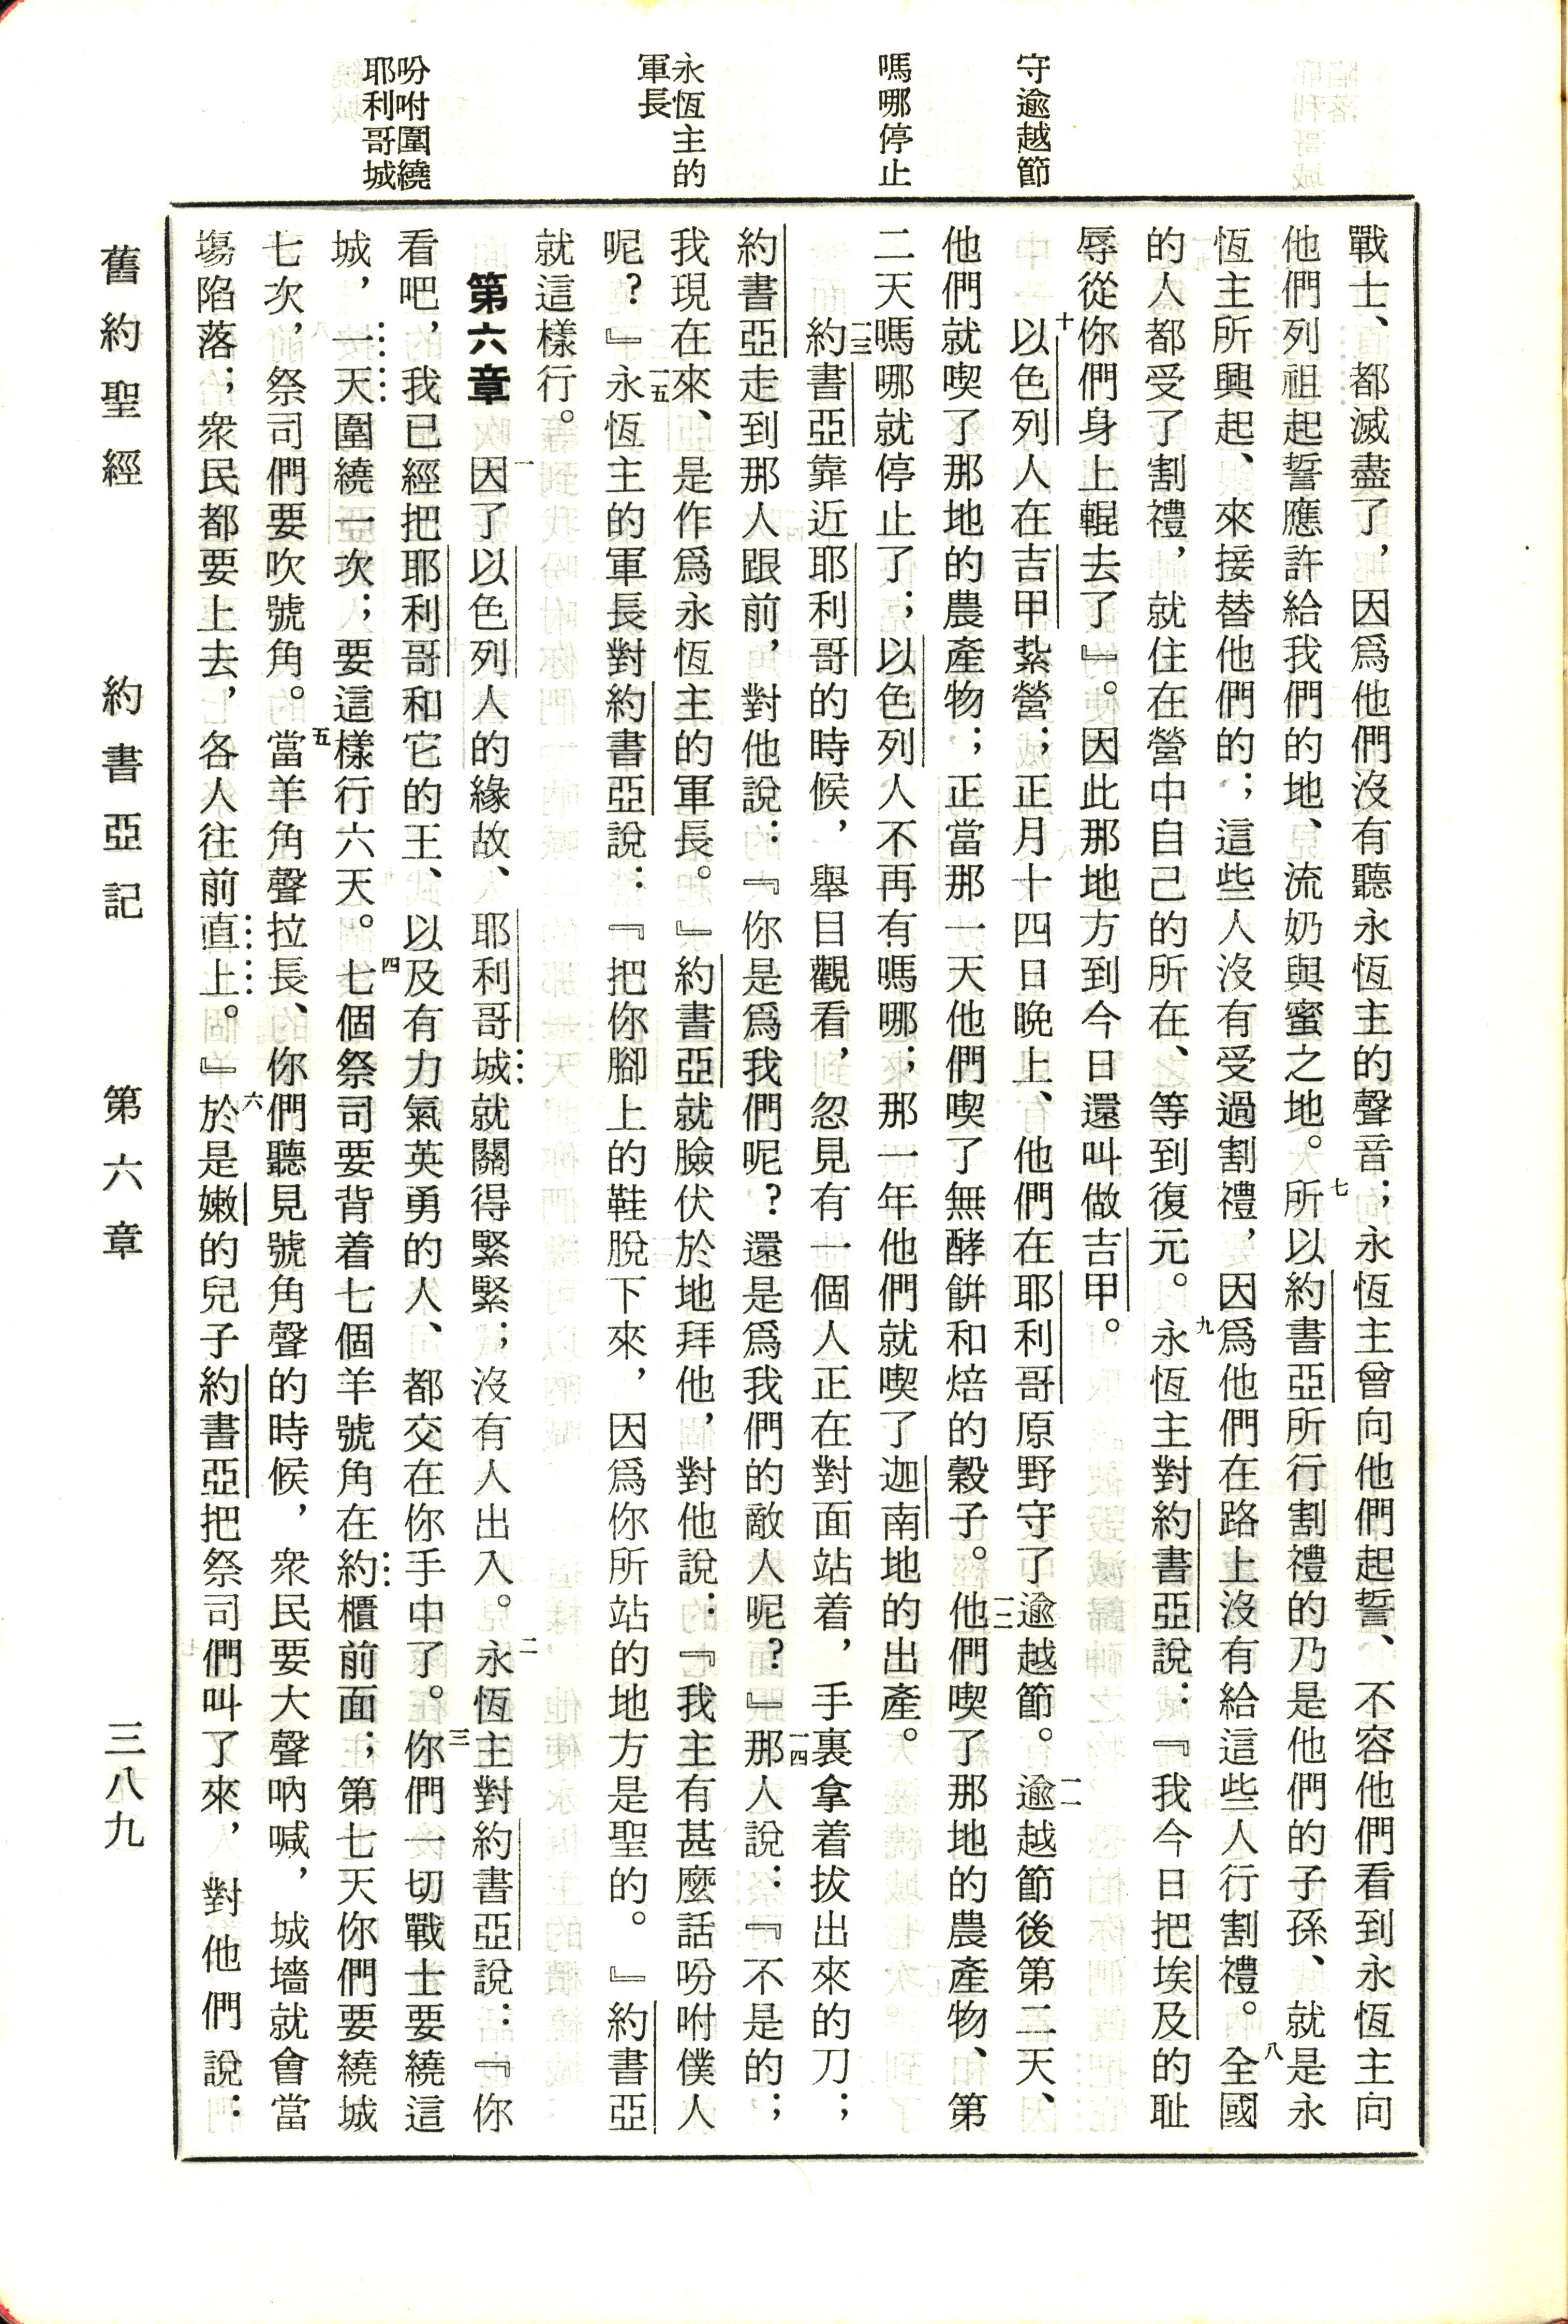 守逾越節
嗎哪停止
永恆主的
軍長
吩咐圍繞
耶利哥城
戰士、都滅盡了，因爲他們沒有聽永恆主的聲音；永恆主曾向他們起誓、不容他們看到永恆主向
他們列祖起誓應許給我們的地、流奶與蜜之地。七所以約書亞所行割禮的乃是他們的子孫、就是永
恆主所興起、來接替他們的；這些人沒有受過割禮，因爲他們在路上沒有給這些人行割禮。八全國
的人都受了割禮，就住在營中自己的所在、等到復元。九永恆主對約書亞說：『我今日把埃及的耻
辱從你們身上輥去了』。因此那地方到今日還叫做吉甲。
十以色列人在吉甲紮營；正月十四日晚上、他們在耶利哥原野守了逾越節。一一逾越節後第二天、
他們就喫了那地的農產物；正當那一天他們喫了無酵餅和焙的穀子。一二他們喫了那地的農產物、第
二天嗎哪就停止了；以色列人不再有嗎哪；那一年他們就喫了迦南地的出產。
一三約書亞靠近耶利哥的時候，舉目觀看，忽見有一個人正在對面站着，手裏拿着拔出來的刀；
約書亞走到那人跟前，對他說：『你是爲我們呢？還是爲我們的敵人呢？』一四那人說：『不是的；
我現在來、是作爲永恆主的軍長。』約書亞就臉伏於地拜他，對他說：『我主有甚麼話吩咐僕人
呢？』一五永恆主的軍長對約書亞說：『把你腳上的鞋脫下來，因爲你所站的地方是聖的。』約書亞
就這樣行。
第六章　一因了以色列人的緣故、耶利哥城就關得緊緊；沒有人出入。二永恆主對約書亞說：『你
看吧，我已經把耶利哥和它的王、以及有力氣英勇的人、都交在你手中了。三你們一切戰士要繞這
城，一天圍繞一次；要這樣行六天。四七個祭司要背着七個羊號角在約櫃前面；第七天你們要繞城
七次，祭司們要吹號角。五當羊角聲拉長、你們聽見號角聲的時候，衆民要大聲吶喊，城墻就會當
塲陷落；衆民都要上去，各人往前直上。』六於是嫩的兒子約書亞把祭司們叫了來，對他們說：
舊約聖經　約書亞記　第六章　三八九